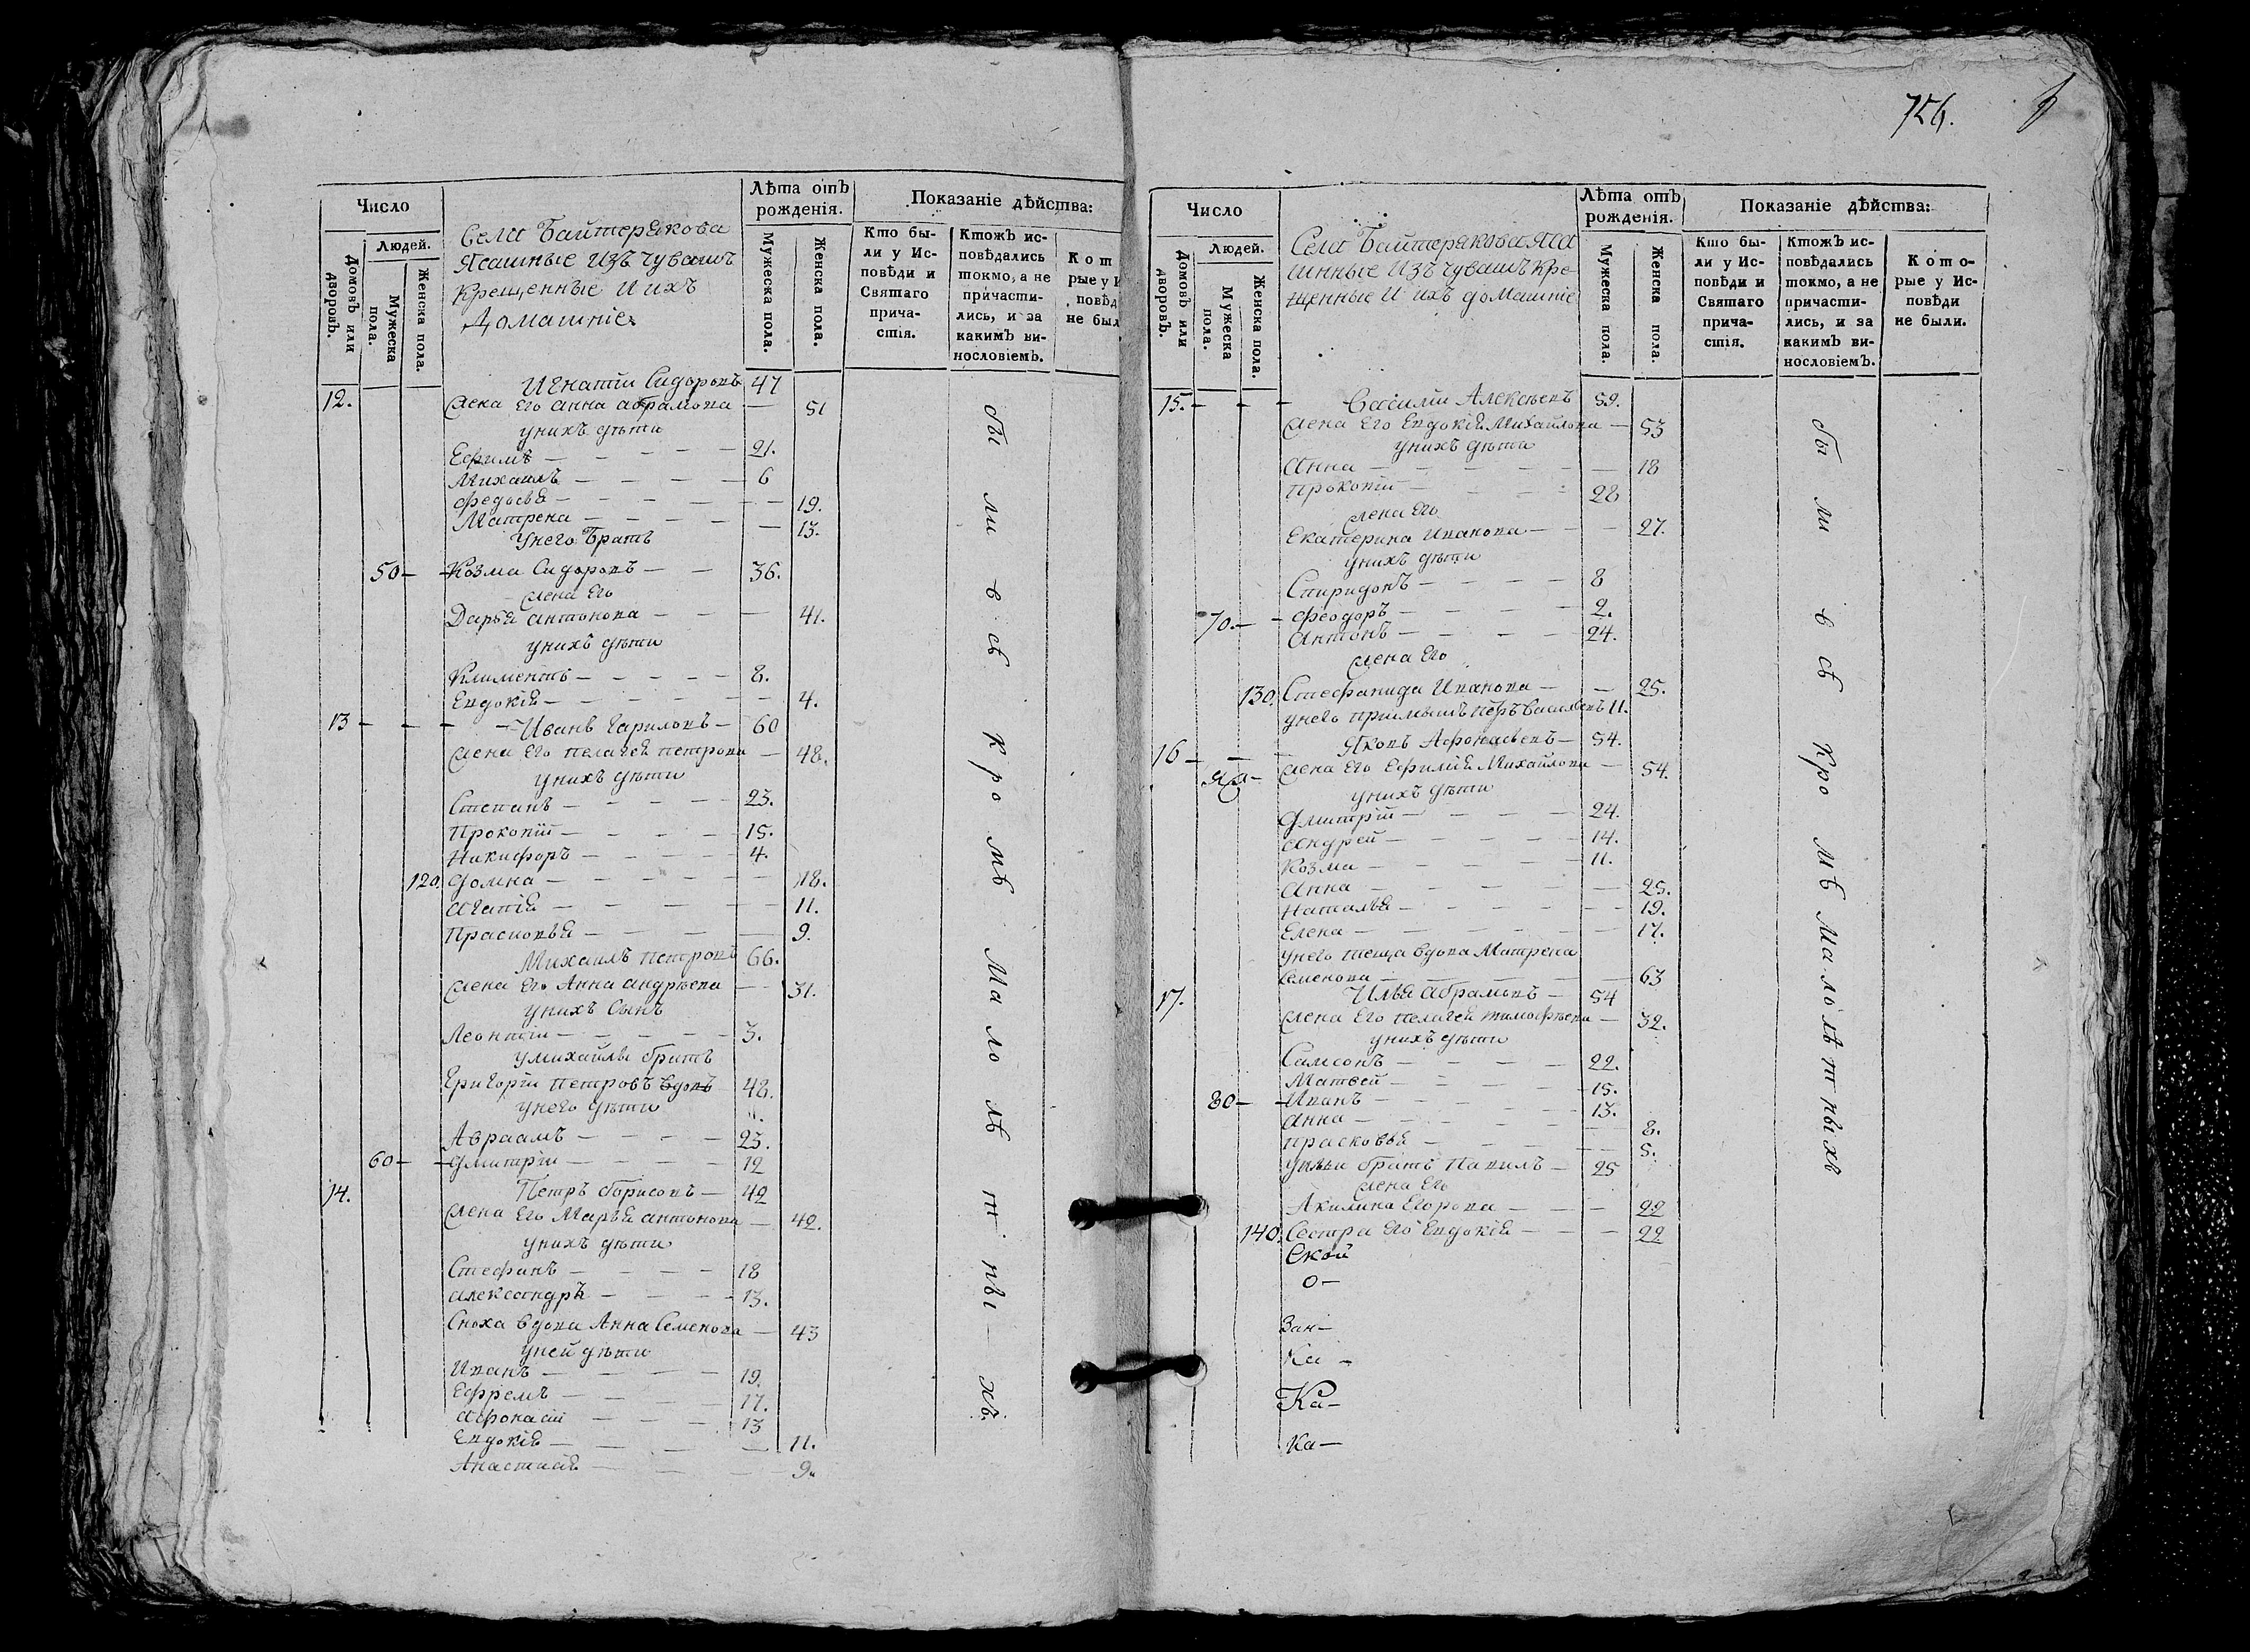 Число
Людей.
Домовъ или дворовъ.
Мужеска пола.
Женска пола.
Села Байтерякова
Ясашные изъ чувашъ
крещенные и ихъ
Домашніе
Лѣта отъ рожденія.
Мужеска пола.
Женска пола.
Показаніе дѣйства:
Кто были у Исповѣди и Святаго причастія.
Ктожъ исповѣдались токмо, а не причастились, и за какимъ винословіемъ.
Кот
рые у И
повѣд
не был
Игнатіи Сидоровъ 47
12. Жена его анна абрамова — 51
унихъ дѣти
Ефимъ — 21.
Михаилъ — 6
Федосья — 19.
Матрена — 13.
Унего Братъ
50 — Козма Сидоровъ — 36.
жена его
Дарья антонова — 41.
унихъ дѣти
Климентъ — 8.
Евдокія — 4.
13 — Иванъ Гариловъ — 60
жена его пелагея петрова — 48.
унихъ дѣти
Степанъ — 23.
Прокопій — 15.
Никифоръ — 4.
120. Домна — 18.
Агапія — 11.
Прасковья — 9.
Михаилъ петровъ 66.
жена его Анна андрѣева — 31.
унихъ Сынъ
Леонтіи — 3.
умихайлы братъ
Григоріи петровъ вдовъ 48.
унего дѣти
Авраамъ — 23.
60 — Дмитріи — 12
14. Петръ борисовъ — 42
жена его Марья антонова — 42.
унихъ дѣти
Стефанъ — 18
александръ — 13.
Сноха вдова Анна Семенова — 43
уней дѣти
Иванъ — 19.
Ефремъ — 17.
Афонасій — 13
Евдокія — 11.
Анастасія — 9.
бы ли всѣ кромѣ Малолѣтныхъ
726.
Число
Людей.
Домовъ или дворовъ.
Мужеска пола.
Женска пола.
Села Байтерякова Яса
шнные изъ чувашъ кре
щенные и ихъ домашніе
Лѣта отъ рожденія.
Мужеска пола.
Женска пола.
Показаніе дѣйства:
Кто были у Исповѣди и Святаго причастія.
Ктожъ исповѣдались токмо, а не причастились, и за какимъ винословіемъ.
Которые у Исповѣди не были.
15. — Василіи Алексѣевъ 59.
жена его Евдокія Михайлова — 53
унихъ дѣти
Анна — 18
Прокопій — 28
жена его
Екатерина Иванова — 27.
унихъ дѣти
Спиридонъ — 8
70. — Феодоръ — 2.
Антонъ — 24.
жена его
130. Стефанида Иванова — 25.
унего пріимышъ петръ Васильевъ 11.
16 — Яковъ Афонасьевъ — 54.
жена его Ефимія Михайлова — 54.
унихъ дѣти
Дмитрій — 24.
андрей — 14.
Козма — 11.
Анна — 25.
Наталья — 19.
Елена — 17.
унего теща вдова Матрена
Семенова — 63
17. Илья абрамовъ — 54
жена его пелагея тимофѣева — 32.
унихъ дѣти
Самсонъ — 22.
Матвей — 15.
80 — Иванъ — 13.
Анна — 8.
прасковья — 5.
уильи братъ Павилъ — 25
жена его
Акилина Егорова — 22
140. Сестра его Евдокія — 22
Ской
о —
Зан —
Ка —
Ка —
Ка —
бы ли всѣ Кро Мѣ Малолѣтныхъ